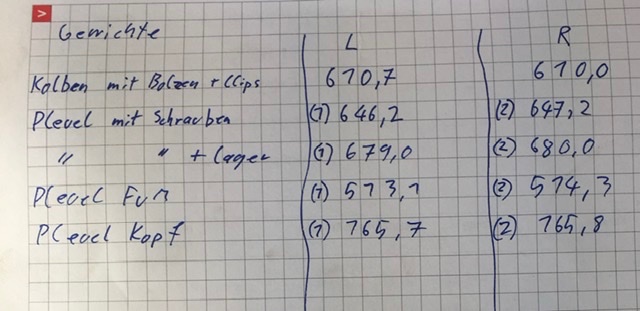 Gewichte
L R
Kolben mit Bolzen + Clips 610,7 610,0
Pleuel mit Schrauben (1) 646,2 (2) 647,2
" " + Lager (1) 679,0 (2) 680,0
Pleuel Fuß (1) 513,1 (2) 514,3
Pleuel Kopf (1) 165,7 (2) 165,8